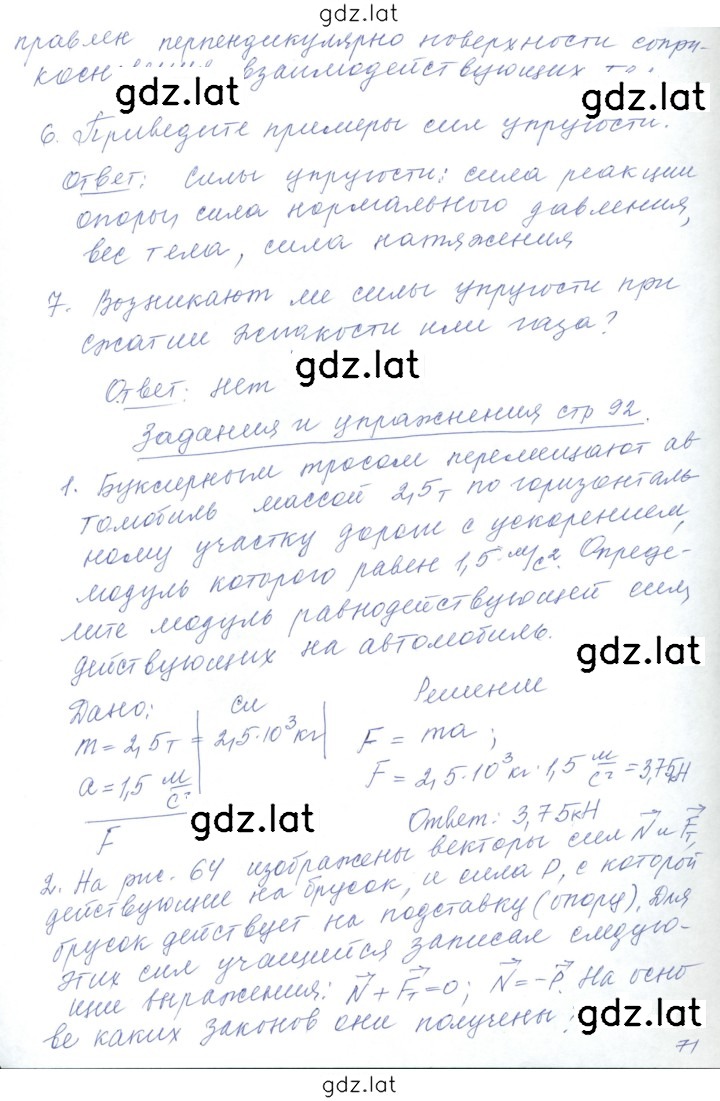 gdz.lat
правлен перпендикулярно поверхности сопри-
косн взаимодействующих
gdz.lat
gdz.lat
6. Приведите примеры сил упругости.
Ответ: Силы упругости: сила реакции
опоры, сила нормального давления,
вес тела, сила натяжения
7. Возникают ли силы упругости при
сжатии жидкости или газа?
gdz.lat
Ответ: Нет
Задания и упражнения стр 92.
1. Буксирным тросом перемещают ав
томобиль массой 2,5т по горизонталь
ному участку дороги с ускорением,
модуль которого равен 1,5 м/с². Опреде-
лите модуль равнодействующей сил,
действующих на автомобиль.
gdz.lat
Дано: СИ Решение
m = 2,5т = 2,5·10³кг F = ma;
a = 1,5 м/с² F = 2,5·10³кг·1,5 м/с² = 3,75кН
gdz.lat
F Ответ: 3,75кН
2. На рис. 64 изображены векторы сил N⃗ и F⃗т,
действующие на брусок, и сила P, с которой
брусок действует на подставку (опору). Для
этих сил учащийся записал следую-
щие выражения: N⃗ + F⃗т = 0; N⃗ = -P⃗. На осно
ве каких законов они получены
gdz.lat
71
gdz.lat